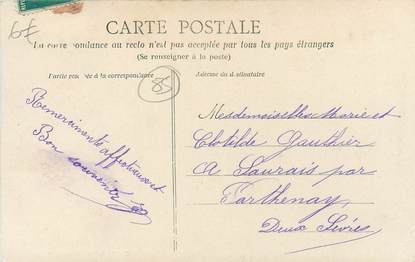 6f
CARTE POSTALE
La correspondance au recto n'est pas acceptée par tous les pays étrangers
(Se renseigner à la poste)
Partie réservée à la correspondance
Adresse du destinataire
85
Remerciements affectueux et
Bon souvenir
Mesdemoiselles Marie et
Clotilde Gauthier
A Saurais par
Parthenay
Deux Sèvres